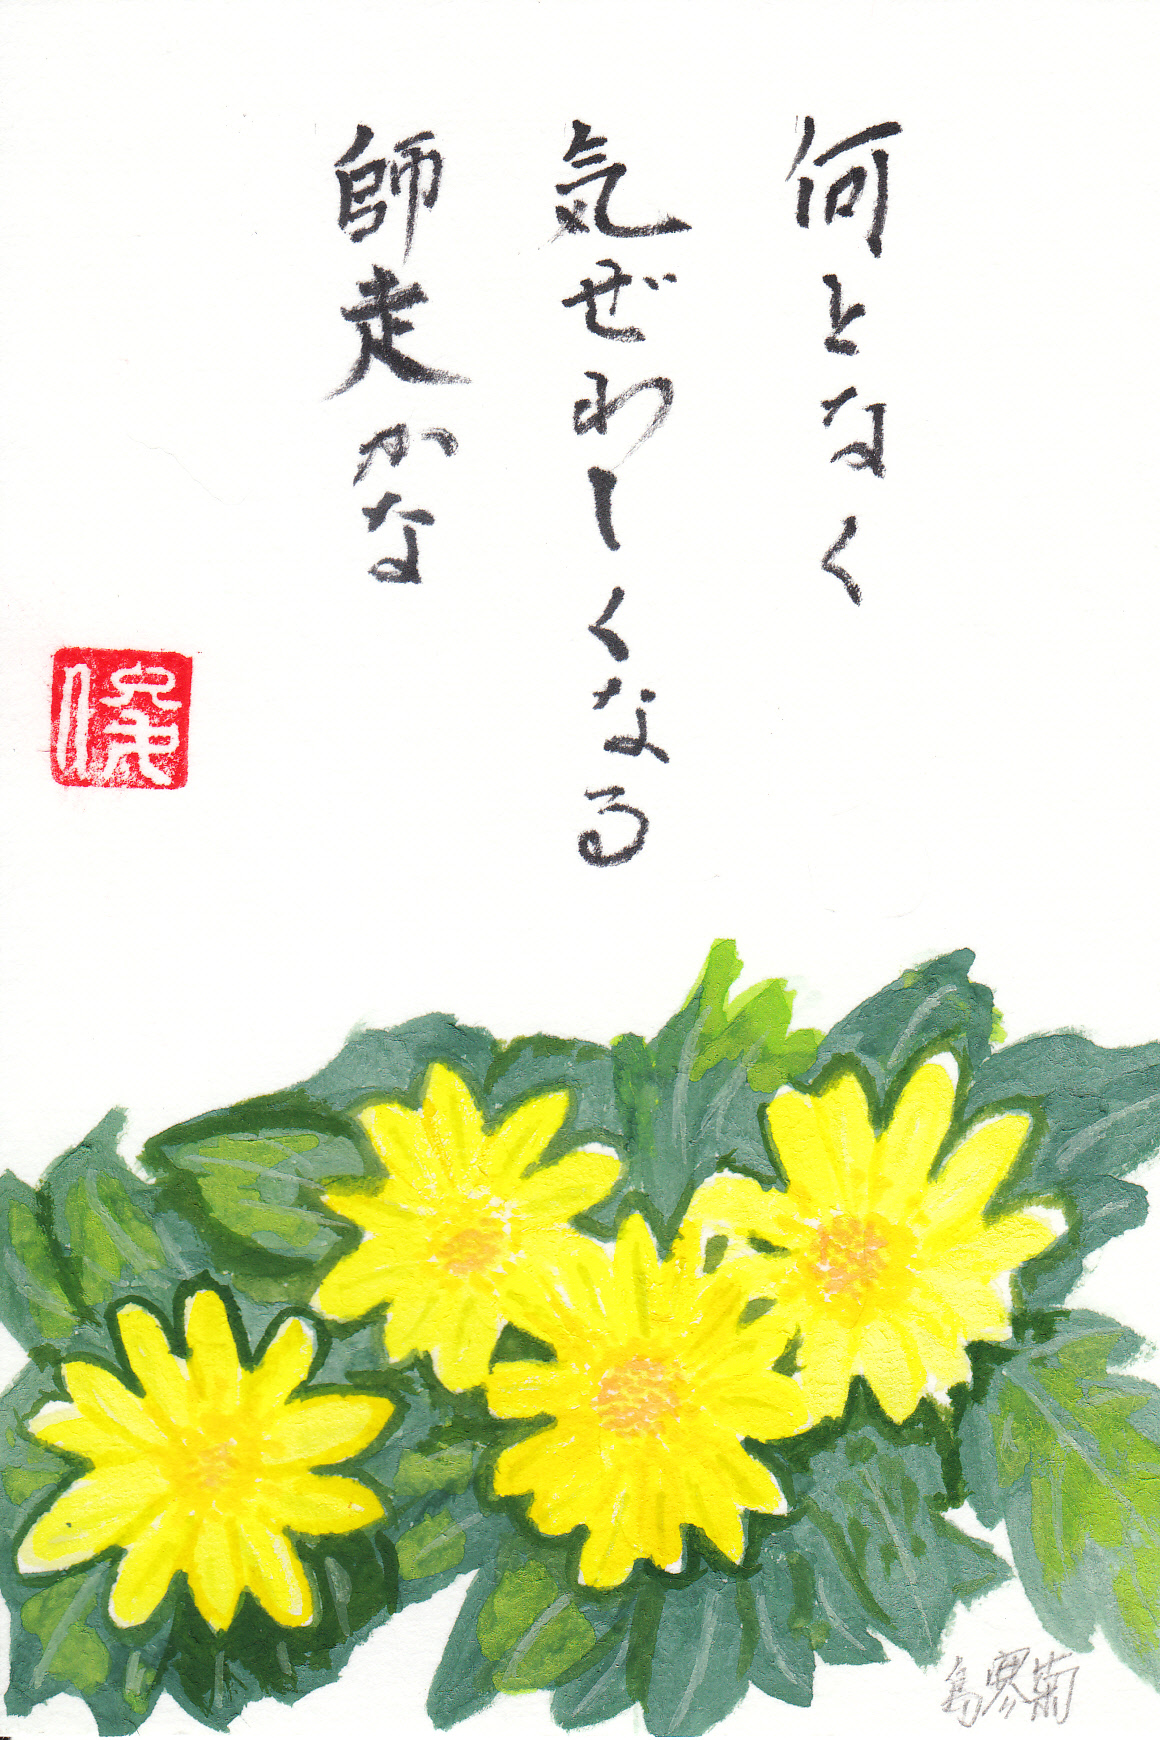 何となく
気ぜわしくなる
師走かな
俊
島寒菊